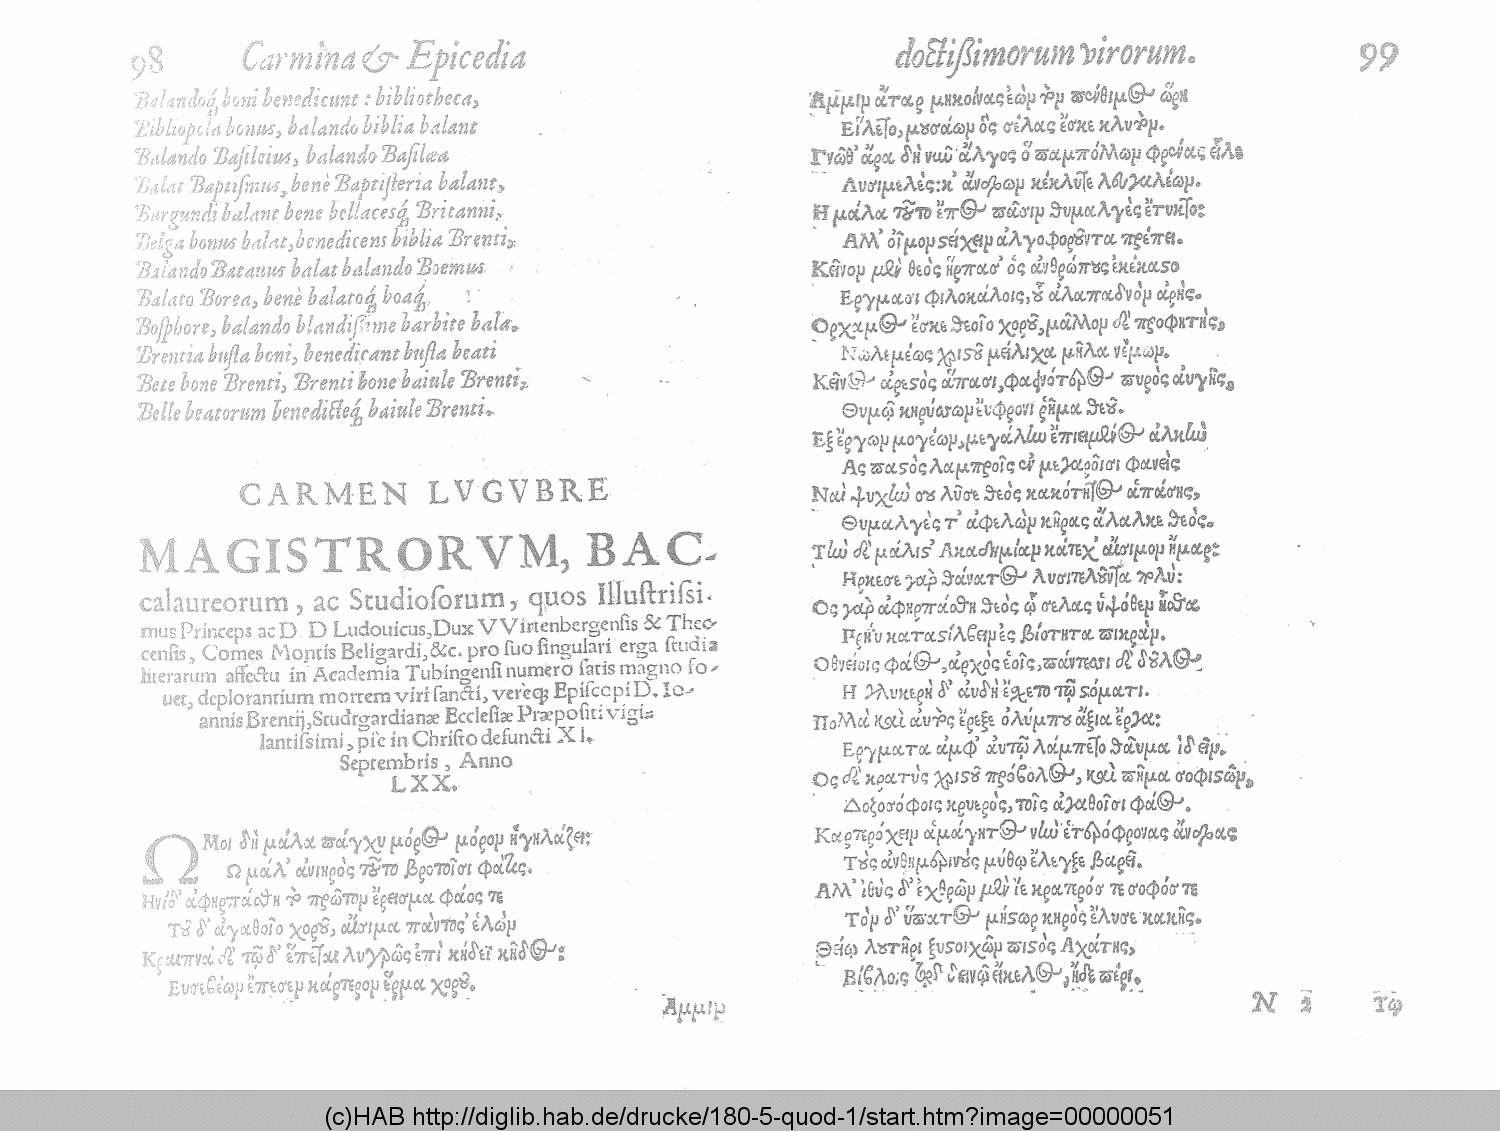 98 Carmina & Epicedia
Balandoq́, boni benedicunt : bibliotheca,
Bibliopola bonus, balando biblia balant
Balando Basileius, balando Basilæa
Balat Baptismus, benè Baptisteria balant,
Burgundi balant bene bellacesq́, Britanni,
Belga bonus balat, benedicens biblia Brenti,
Balando Batauus balat balando Boemus
Balato Borea, benè balatoq́, boaq́,
Bosphore, balando blandissime barbite bala.
Brentia busta boni, benedicant busta beati
Bete bone Brenti, Brenti bone baiule Brenti,
Belle beatorum benedicteq́, baiule Brenti.
CARMEN LVGVBRE
MAGISTRORVM, BAC-
calaureorum, ac Studiosorum, quos Illustrissi-
mus Princeps ac D. D Ludouicus, Dux VVirtenbergensis & Theo
censis, Comes Montis Beligardi, &c. pro suo singulari erga studia
literarum affectu in Academia Tubingensi numero satis magno fo-
uet, deplorantium mortem viri sancti, vereq; Episcopi D. Io-
annis Brentij, Studtgardianæ Ecclesiæ Præpositi vigi-
lantissimi, pie in Christo defuncti XI.
Septembris, Anno
LXX.
ΩΜοι δὴ μάλα πάγχυ μόρος μόρον ἠγηλάζει:
Ω μάλ' ἀνιηρὸς τοῦτο βροτοῖσι φάτις.
Ηνίδ' ἀφηρπάσθη τὸ πρῶτον ἔρεισμα φάος τε
Τοῦ δ' ἀγαθοῖο χοροῦ, αἴσιμα παντὸς ἑλὼν
Κραιπνὰ δὲ τῷ δ' ἕπεται λυγρῶς ἐπὶ κήδεϊ κῆδος:
Ευσεβέων ἔπεσεν κάρτερον ἕρμα χοροῦ.
Αμμιν
doctissimorum virorum. 99
Αμμιν ἄταρ μηκοίνας ἑὼν τὸν πένθιμος ὥρη
Εἵλετο, μουσάων ὃς σέλας ἔσκε κλυτόν.
Γνῶθ' ἄρα δὴ νῶϊ ἄλγος ὃ παμπόλλων φρένας εἷλε
Λυσιμελές: κ' ἀνδρῶν κέκλυτε λευγαλέων.
Η μάλα τοῦτο ἔπος πᾶσιν θυμαλγὲς ἐτυκτο:
Αλλ' οἶμον στείχειν ἀλγοφοροῦντα πρέπει.
Κεῖνον μὲν θεὸς ἥρπασ' ὃς ἀνθρώπους ἐκέκαστο
Εργμασι φιλοκάλοις, οὐ ἀλαπαδνὸν ἀρῆς.
Ορχαμος ἔσκε θεοῖο χοροῦ, μᾶλλον δὲ προφητὴς,
Νωλεμέως χριστοῦ μείλιχα μῆλα νέμων.
Κεῖνος ἀρεστὸς ἅπασι, φαεινότερος πυρὸς αὐγῆς,
Θυμῷ κηρύσσων εὔφρονι ῥῆμα θεοῦ.
Εξ ἔργων μογέων, μεγάλην ἐπιειμένος ἀλκὴν
Ας παστὸς λαμπροῖς ἐν μεγαροῖσι φανεὶς
Ναὶ ψυχὴν σου λῦσε θεὸς κακότητος ἁπάσης,
Θυμαλγές τ' ἀφελὼν κῆρας ἄλαλκε θεός.
Τὴν δὲ μάλιστ' Ακαδημίαν κάτεχ' αἴσιμον ἦμαρ:
Ηρκεσε γὰρ θάνατος λυσιτελοῦντα πολύ:
Ος γὰρ ἀφηρπάσθη θεὸς ᾧ σέλας ὑψόθεν ἧσθα
Ρεῖν καταστίλβειν ἐς βίοτητα πικράν.
Οθνείοις φάος, ἀρχὸς ἑοῖς, πάντεσσι δὲ δοῦλος.
Η γλυκερὴ δ' αὐδὴ ἔρχετο τῷ στόματι.
Πολλὰ καὶ αὐτὸς ἔρεξε ὀλύμπου ἄξια ἔργα:
Εργματα ἀμφ' αὐτῷ λάμπετο θαῦμα ἰδεῖν.
Ος δὲ κρατὺς χριστοῦ πρόβολος, καὶ πῆμα σοφιστῶν,
Δοξοσόφοις κρυερὸς, τοῖς ἀγαθοῖσι φάος.
Καρτερόχειρ ἀμάγητος νῦν ἑτερόφρονας ἄνδρας
Τοὺς ἀνθημερινοὺς μύθῳ ἔλεγξε βαρεῖ.
Αλλ' ἰθὺς δ' ἐχθρῶν μὲν ἴε κρατερός τε σοφός τε
Τὸν δ' ὕπατος μήστωρ κηρὸς ἔλυσε κακῆς.
Θείῳ λυτῆρι ξυστοιχῶν πιστὸς Αχάτης,
N 2 Τῷ